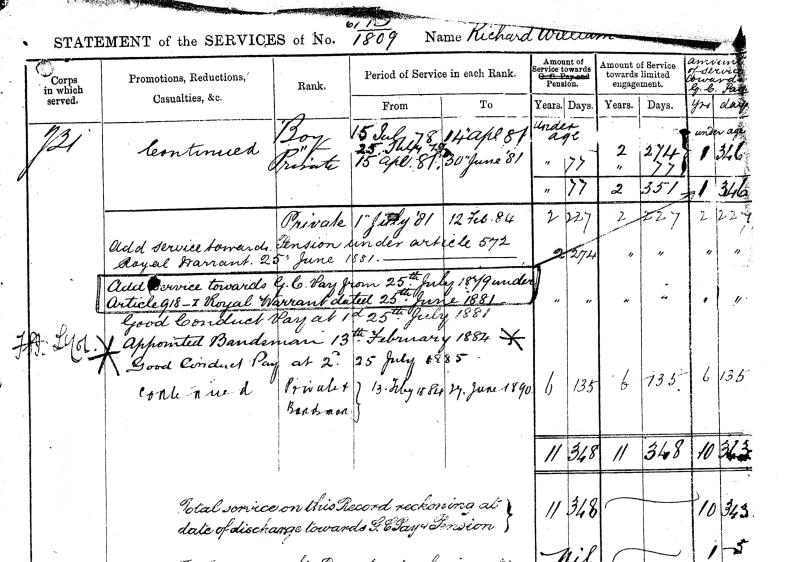 STATEMENT of the SERVICES of No. 1809 Name Richard William
Corps in which served. Promotions, Reductions, Casualties, &c. Rank. Period of Service in each Rank. From To Amount of Service towards G. C. Pay and Pension. Years. Days. Amount of Service towards limited engagement. Years. Days. amount of service towards G. C. Pay Yrs days
Boy 15 July 78 14 Apl 81 under age under age
Continued " 25 July 79 2 274 1 346
Private 15 Apl. 81. 30 June '81 " 77 " 77
" 77 2 351 1 346
Private 1st July '81 12 Feb. 84 2 227 2 227 2 227
Add service towards Pension under article 572
Royal Warrant. 25th June 1881. 2 274 " " " "
Add Service towards G.C. Pay from 25th July 1879 under
Article 918-I Royal Warrant dated 25th June 1881 " " " " " "
Good Conduct Pay at 1d 25th July 1881
Appointed Bandsman 13th February 1884
Good Conduct Pay at 2d. 25 July 1885.
Continued Private & Bandsman } 13. Feby 1884 27. June 1890 6 135 6 135 6 135
11 348 11 348 10 343
Total service on this Record reckoning at
date of discharge towards G.C. Pay & Pension } 11 348 10 343
Nil 1 5